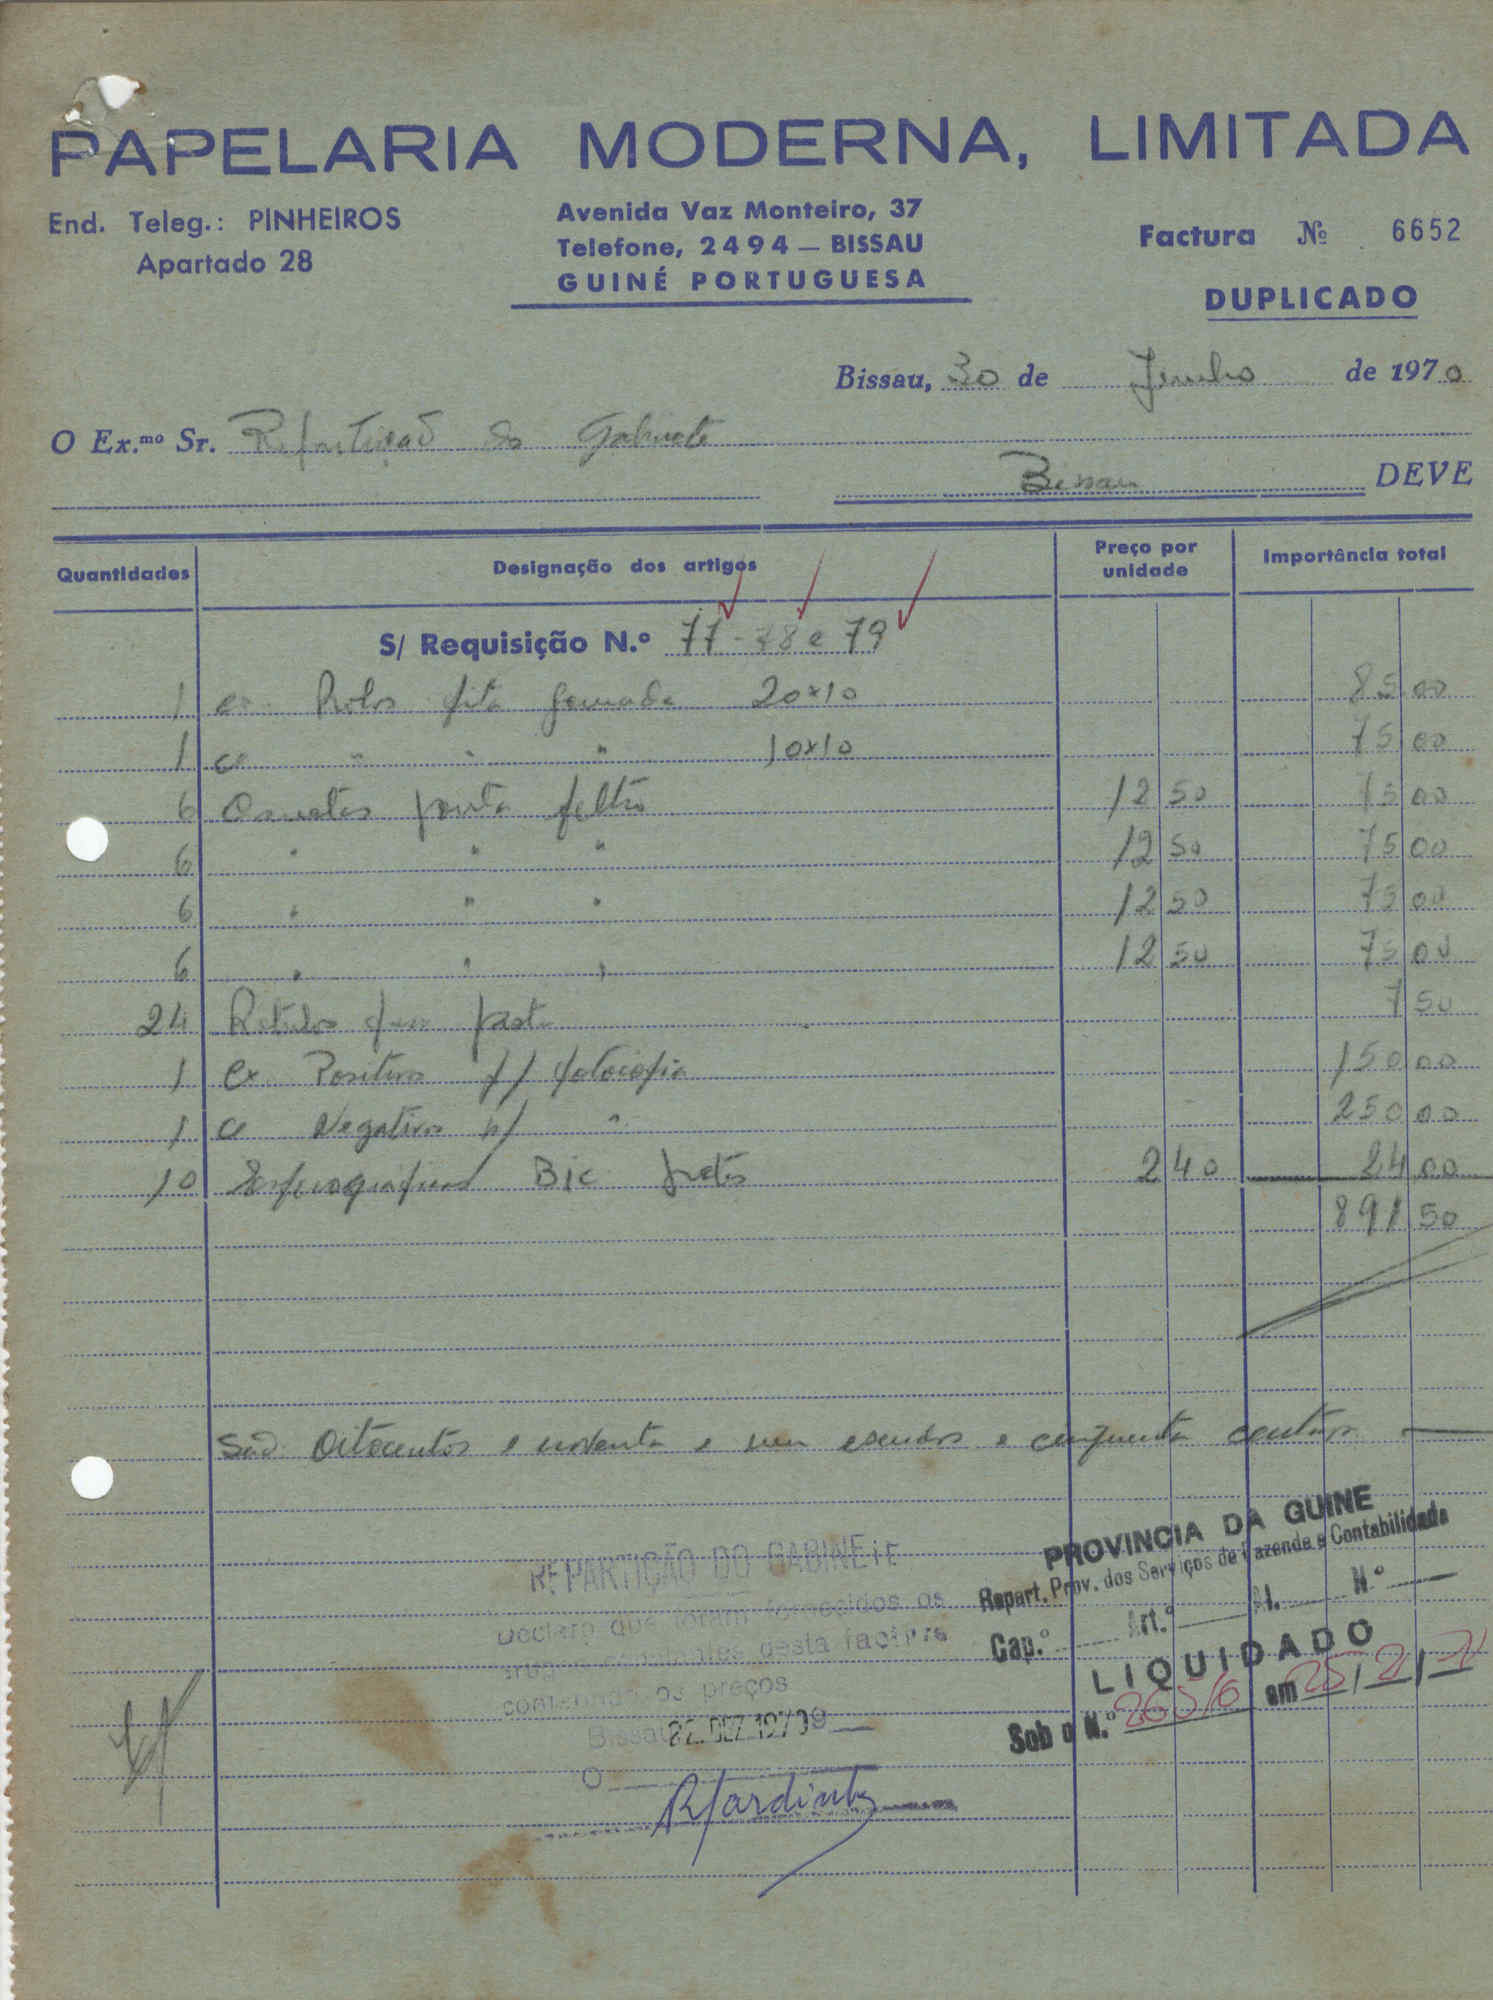 PAPELARIA MODERNA, LIMITADA
End. Teleg.: PINHEIROS
Apartado 28
Avenida Vaz Monteiro, 37
Telefone, 2494 — BISSAU
GUINÉ PORTUGUESA
Factura Nº 6652
DUPLICADO
Bissau, 30 de Junho de 1970
O Ex.mo Sr. Repartição do Gabinete
Bissau DEVE
Quantidades Designação dos artigos Preço por unidade Importância total
S/ Requisição N.º 77-78 e 79
1 cx Rolos fita gomada 20x10 85 00
1 cx " " " 10x10 75 00
6 Canetas ponta feltro 12 50 75 00
6 " " " 12 50 75 00
6 " " " 12 50 75 00
6 " " " 12 50 75 00
24 7 50
1 cx Positivo p/ fotocopia 150 00
1 cx Negativo p/ " 250 00
10 Bic pretas 2 40 24 00
891 50
São: Oitocentos e noventa e um escudos e cinquenta centavos
REPARTIÇÃO DO GABINETE
Declaro que foram fornecidos os
artigos constantes desta factura
conferindo os preços
Bissau 22. DEZ. 1970
O
PROVINCIA DA GUINE
Repart. Prov. dos Serviços de Fazenda e Contabilidade
Cap.º Art.º Al. N.º
LIQUIDADO
Sob o N.º em 25/2/71